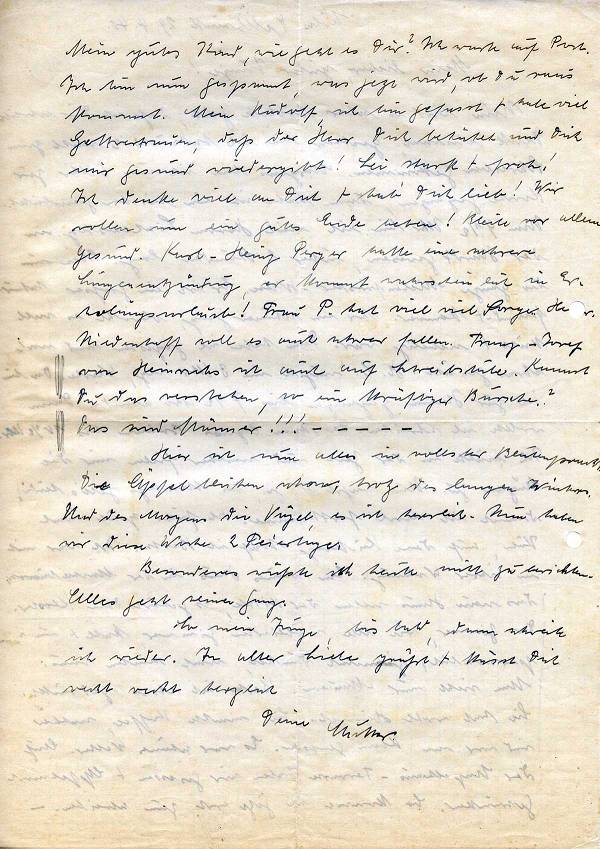 Mein gutes Kind, wie geht es Dir? Ich warte auf Post.
Ich bin nun gespannt, was jetzt wird, ob Du raus
kommst. Mein Rudolf, ich bin gefasst + habe viel
Gottvertrauen, daß der Herr Dich behütet und Dich
mir gesund wiedergibt! Sei stark + froh!
Ich denke viel an Dich + hab' Dich lieb! Wir
wollen nun ein gutes Ende beten! Bleibe vor allem
gesund. Karl-Heinz Perger hatte eine schwere
Lungenentzündung, er kommt wahrscheinlich in Er-
holungsurlaub! Frau P. hat viel viel Sorge. Herr
Niedenhoff soll es auch schwer fallen. Franz-Josef
von Heinrichs ist auch auf Schreibstube. Kannst
Du das verstehen, so ein kräftiger Bursche?
Das sind Männer!!! - - - - -
Hier ist nun alles in vollster Blütenpracht,
Die Äpfel blühen schon, trotz des langen Winters.
Und des Morgens die Vögel, es ist herrlich. Nun haben
wir diese Woche 2 Feiertage.
Besonderes wüßte ich heute nicht zu berichten.
Alles geht seinen Gang.
So mein Junge, bis bald, dann schreibe
ich wieder. In alter Liebe grüßt + küsst Dich
recht recht herzlich
Deine Mutter.